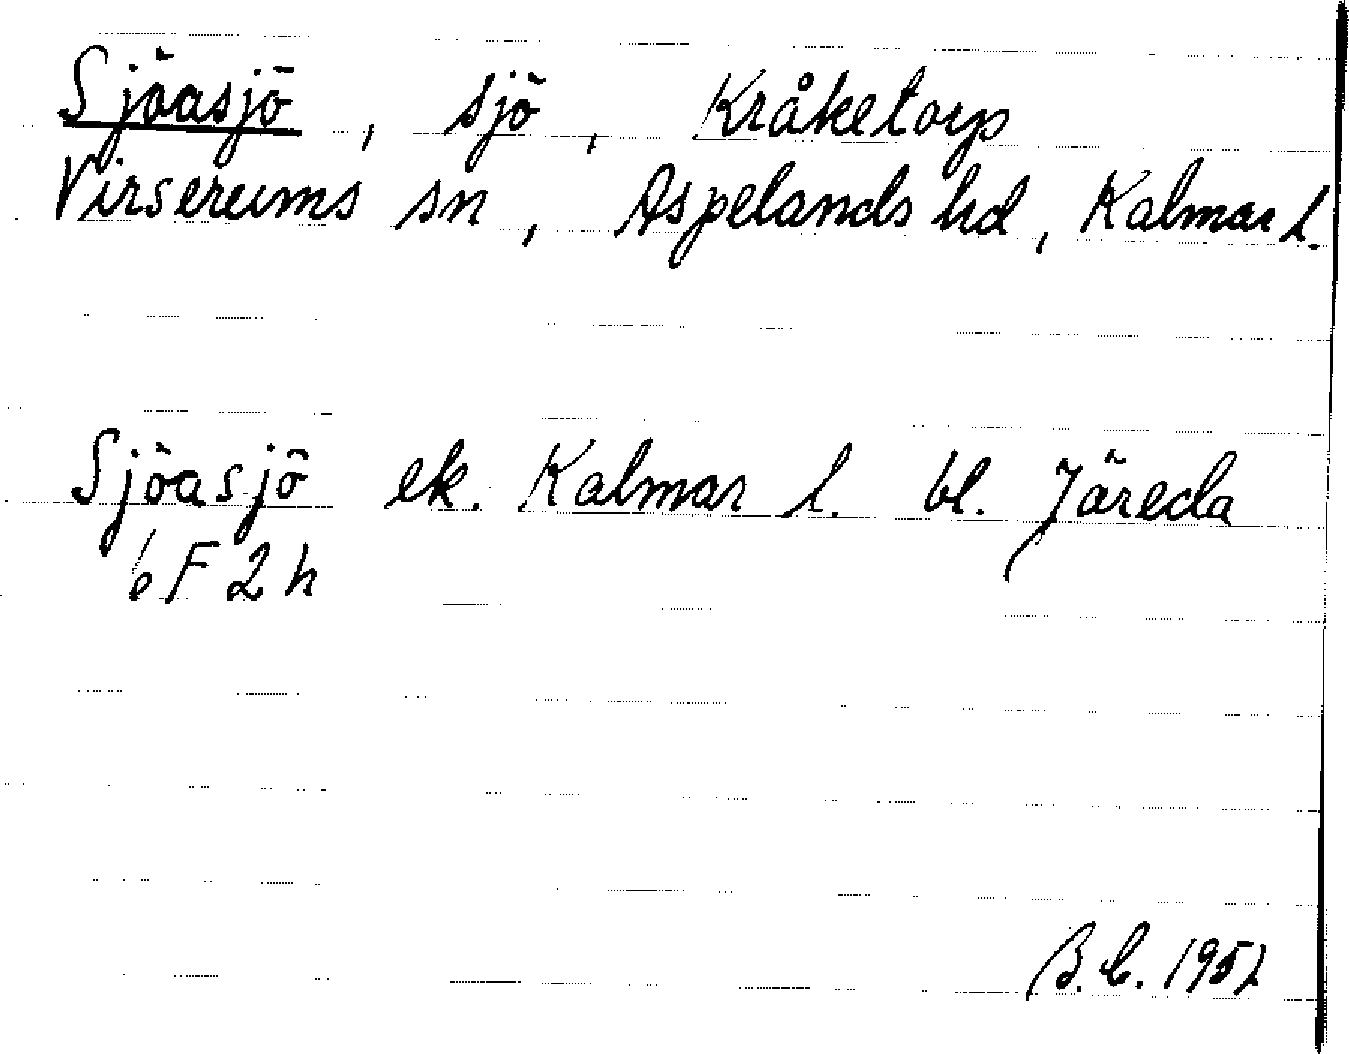 Sjöasjö, sjö, Kråketorp
Virserums sn, Aspelands hd, Kalmar l.
Sjöasjö ek. Kalmar l. bl. Järeda
6F2h
B.C. 1952